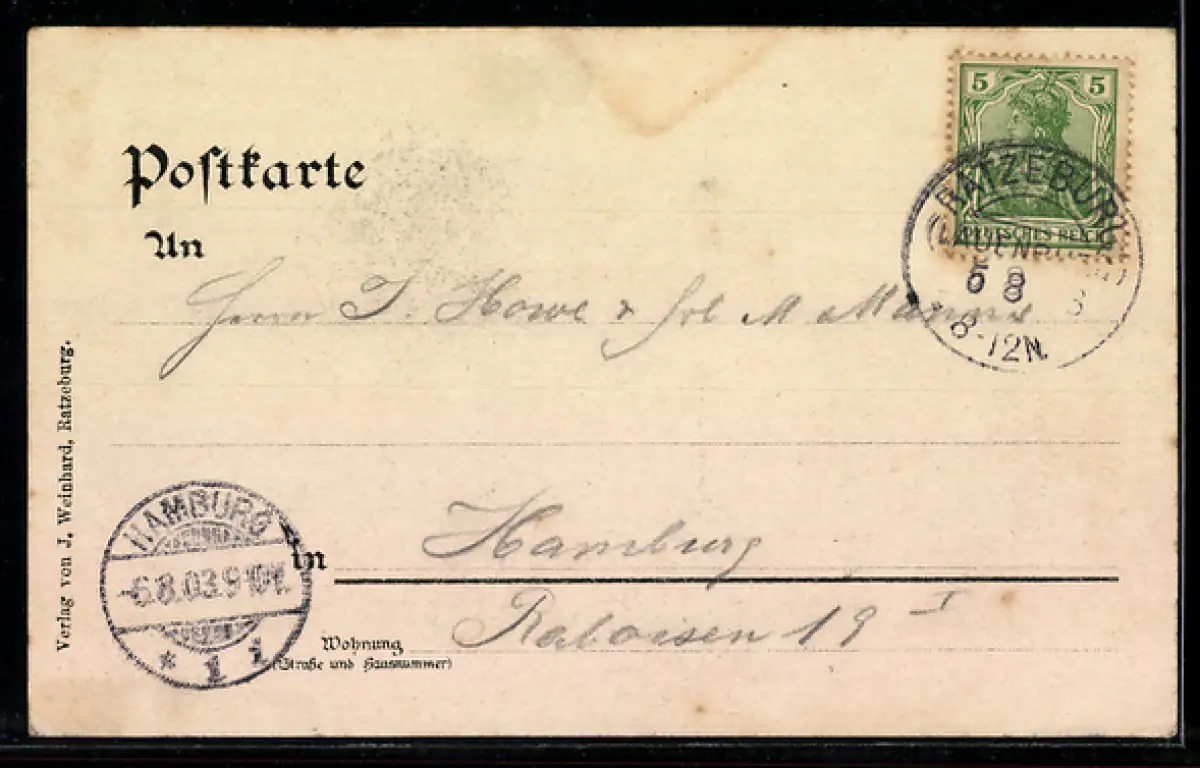 5 5
DEUTSCHES REICH
RATZEBURG
(LAUENBURG)
8
8-12N.
Postkarte
An
Herrn J. Howe & Frl M
Verlag von J. Weinhard, Ratzeburg.
HAMBURG
-6.8.03.9-10V.
* 1 i
in Hamburg
Wohnung
(Straße und Hausnummer)
Raboisen 19 I